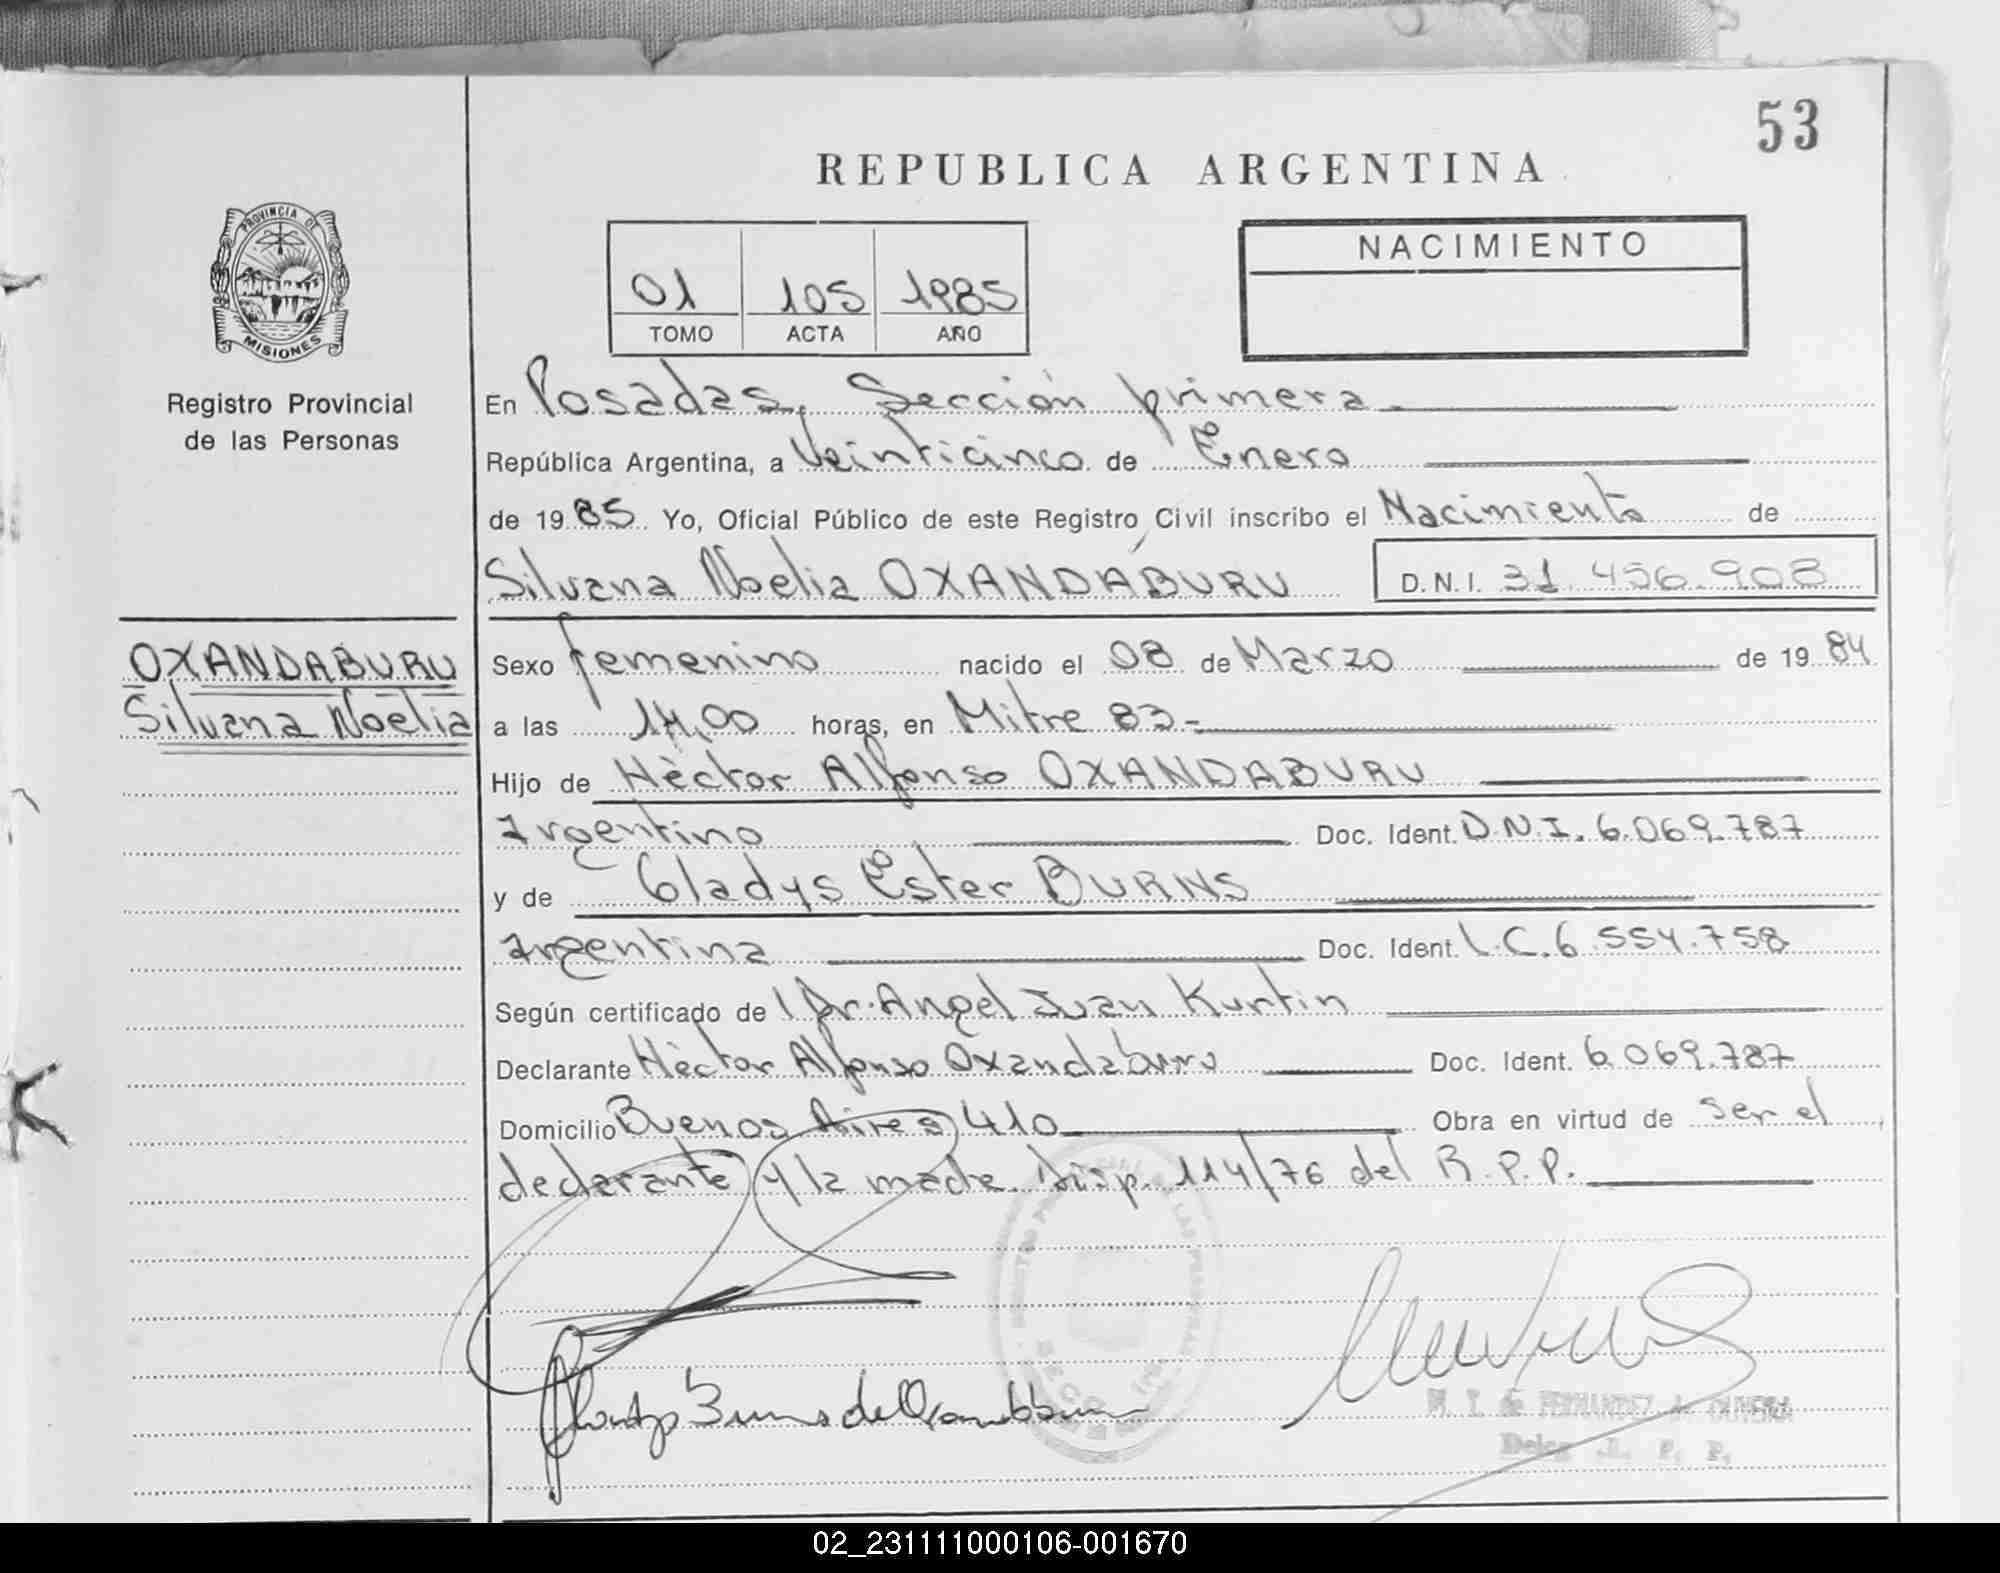 53
REPUBLICA ARGENTINA
PROVINCIA DE
MISIONES
Registro Provincial
de las Personas
01 105 1985
TOMO ACTA AÑO
NACIMIENTO
En Posadas, Sección primera
República Argentina, a Veinticinco de Enero
de 1985 Yo, Oficial Público de este Registro Civil inscribo el Nacimiento de
Silvana Noelia OXANDABURU D.N.I. 31.456.908
OXANDABURU
Silvana Noelia
Sexo femenino nacido el 08 de Marzo de 1984
a las 14,00 horas, en Mitre 83.-
Hijo de Hèctor Alfonso OXANDABURU
Argentino Doc. Ident. D.N.I. 6.069.787
y de Gladys Ester BURNS
Argentina Doc. Ident. L.C. 6.554.758
Según certificado de l Dr. Angel Juan Kurtin
Declarante Hèctor Alfonso Oxandaburu Doc. Ident. 6.069.787
Domicilio Buenos Aires 410 Obra en virtud de ser el
declarante y la madre. Disp. 114/76 del R.P.P.
M. T. de FERNANDEZ de OLIVEIRA
02_231111000106-001670